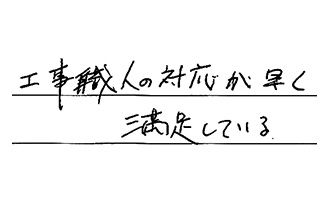 工事職人の対応が早く
満足している